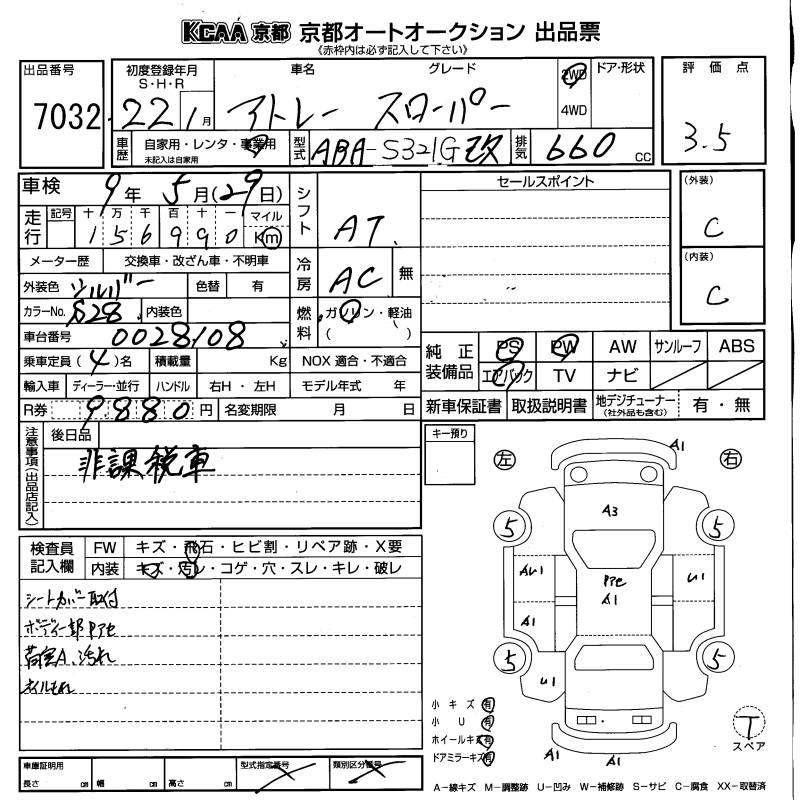 KCAA 京都 京都オートオークション 出品票
《赤枠内は必ず記入して下さい》
出品番号 7032
初度登録年月 S・H・R 22 1月
車名 グレード アトレー スローパー
2WD 4WD
ドア・形状
評価点 3.5
車歴 自家用・レンタ・事業用 未記入は自家用
型式 ABA-S321G改
排気 660 cc
車検 9年 5月(29日)
シフト AT
セールスポイント
(外装) C
走行 記号 十 万 千 百 十 一 マイル
1 5 6 9 9 0 Km
メーター歴 交換車・改ざん車・不明車
冷房 AC 無
(内装) C
外装色 シルバー 色替 有
カラーNo. S28 内装色
燃料 ガソリン・軽油 ( )
車台番号 0028108
乗車定員 (4)名 積載量 Kg NOX 適合・不適合
純正装備品 PS PW AW サンルーフ ABS
エアバック TV ナビ
輸入車 ディーラー・並行 ハンドル 右H・左H モデル年式 年
R券 9880 円 名変期限 月 日
新車保証書 取扱説明書 地デジチューナー (社外品も含む) 有・無
注意事項(出品店記入) 後日品
非課税車
キー預り
左 右
A1
A3
5 5
AU1 Pre A1 U1
A1
5 5
U1
A1 A1
検査員記入欄 FW キズ・飛石・ヒビ割・リペア跡・X要
内装 キズ・汚れ・コゲ・穴・スレ・キレ・破レ
シートカバー取付
ボディ一部Pre
荷室A、汚れ
オイルもれ
小キズ 有
小U 有
ホイールキズ 有
ドアミラーキズ 有
T スペア
車庫証明用 長さ cm 幅 cm 高さ cm 型式指定番号 類別区分番号
A-線キズ M-調整跡 U-凹み W-補修跡 S-サビ C-腐食 XX-取替済